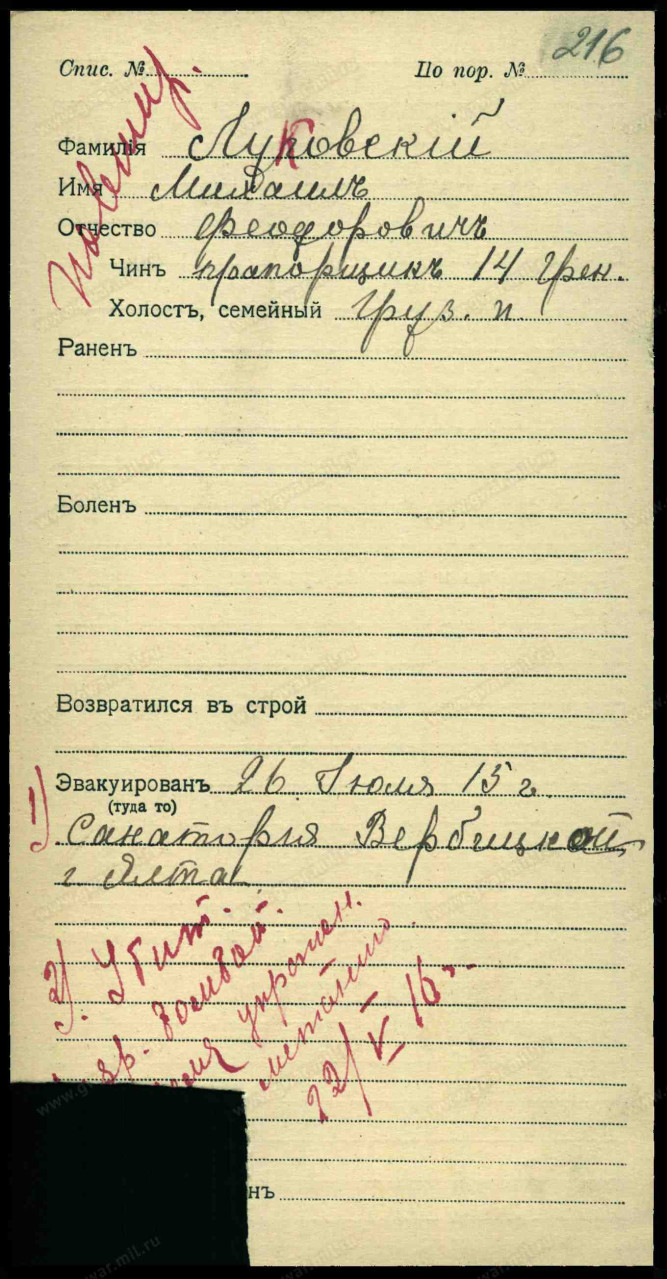 216
Спис. № По пор. №
Фамилія Луковскій
Имя Михаилъ
Отчество Феодоровичъ
Чинъ прапорщикъ 14 грен.
Холостъ, семейный Груз. п.
Раненъ
Боленъ
Возвратился въ строй
1) Эвакуированъ 26 Іюля 15 г.
(туда то)
Санаторія Вербицкой
г. Ялта
2). Убит.
гр. бомбой.
упражн.
метанію
22/V 16 г.
нъ